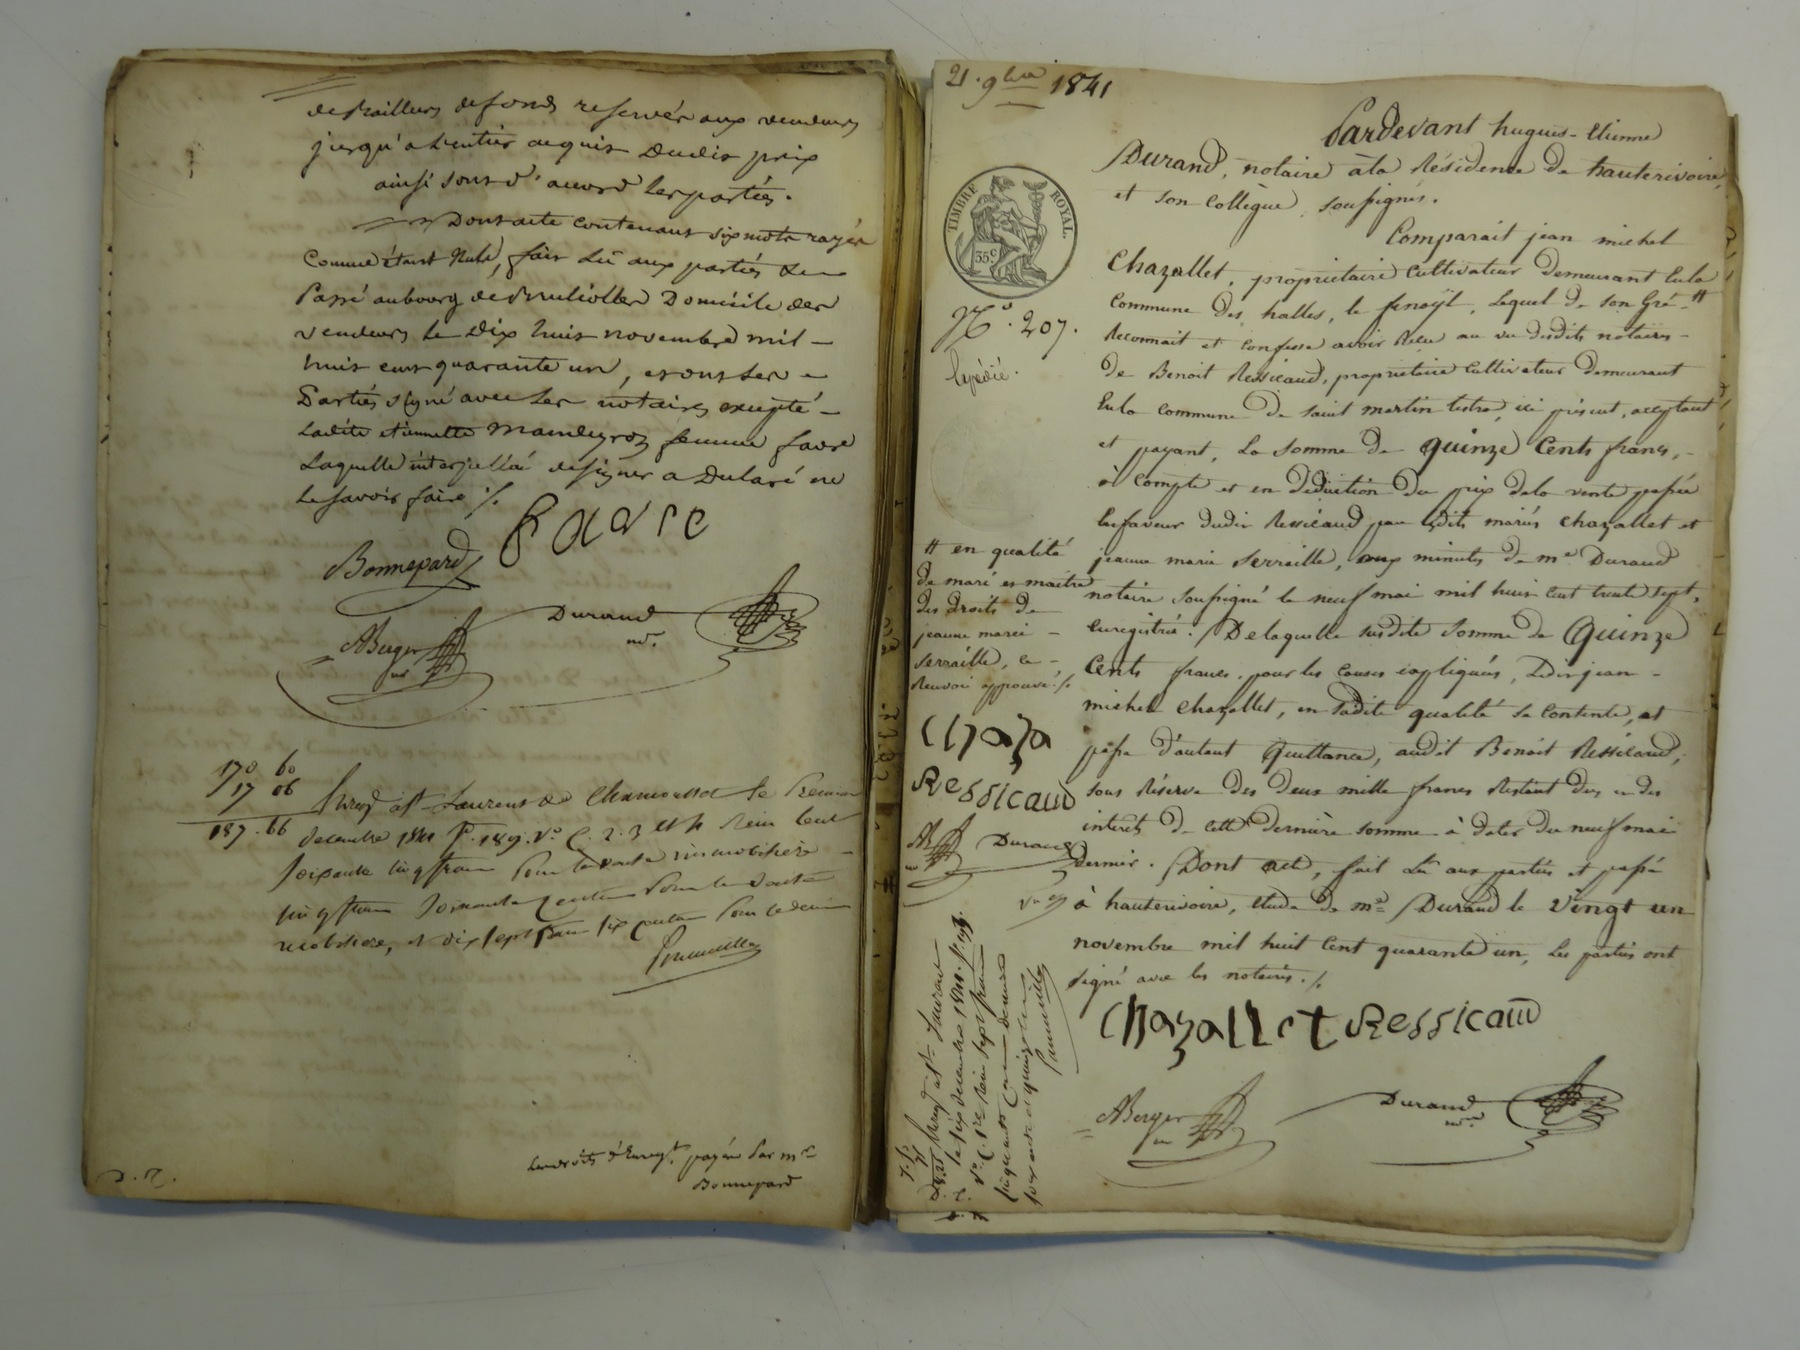 de Bailleurs de fonds reservés aux vendeurs
jusqu'a l'entier acquis dudit prix
ainsi sont d'accord les parties.
Dont acte contenant six mots rayés
Comme étant Nuls, fait Lu aux parties &
Passé au bourg de Brullolles Domicile des
vendeurs le dix huit novembre mil
huit cent quarante un, et ont les
Parties signé avec les notaires excepté
Ladite etiennette femme favre
Laquelle interpellée de signer a Déclaré ne
Le savoir faire ./.
Favre
Bonnepard
ABerger
nre
Durand
nre.
170 60
17 06
187.66
Enregé à St Laurent de Chamousset le Premier
décembre 1841 fo. 189. Vo. C. 2. 3 et 4 Reçu Cent
soixante cinq francs Pour la vente immobilière
cinq francs soixante centimes Pour la vente
mobilière, et dix sept francs six centimes Pour le décime
Les droits d'Enregt. payés Par me
Bonnepard
21. 9bre 1841
TIMBRE ROYAL.
35c
No. 207.
Expédié.
Pardevant hugues-Etienne
Durand, notaire à la Résidence de hauterivoire,
et son Collègue, soussignés.
Comparait jean michel
Chazallet, propriétaire Cultivateur Demeurant En la
Commune des halles, le fenoÿl, Lequel de son Gré #
Reconnait et confesse avoir Reçu au vu desdits notaires
de Benoit Ressicaud, propriétaire Cultivateur Demeurant
En la Commune de saint martin lestra, ici présent, acceptant
et payant, La somme de quinze Cents francs,
à Compte et en Déduction du prix de la vente passée
En faveur dudit Ressicaud par lesdits mariés Chazallet et
jeanne marie Serraille, aux minutes de me Durand
notaire soussigné le neuf mai mil huit cent trente sept,
Enregistrée. De laquelle susdite Somme de Quinze
Cents francs, pour les causes expliquées, Ledit jean
michel Chazallet, en sadite qualité se Contente, et
passe d'autant Quittance, audit Benoit Ressicaud,
sous Réserve des Deux mille francs Restant dus et des
intérêts de cette dernière somme à dater du neuf mai
dernier. Dont acte, fait Lu aux parties et passé
à hauterivoire, étude de me Durand le vingt un
novembre mil huit Cent quarante un, Les parties ont
signé avec les notaires ./.
Chazallet Ressicaud
ABerger
nre
Durand
nre
# en qualité
de mari et maître
des droits de
jeanne marie
Serraille, ce
Renvoi approuvé ./.
Chaza
Ressicaud
AB
Durand
Enregé à St. Laurent
le six décembre 1841. fo. 193.
Vo. C. 1re Reçu sept francs
cinquante Cent décime
soixante et quinze centimes